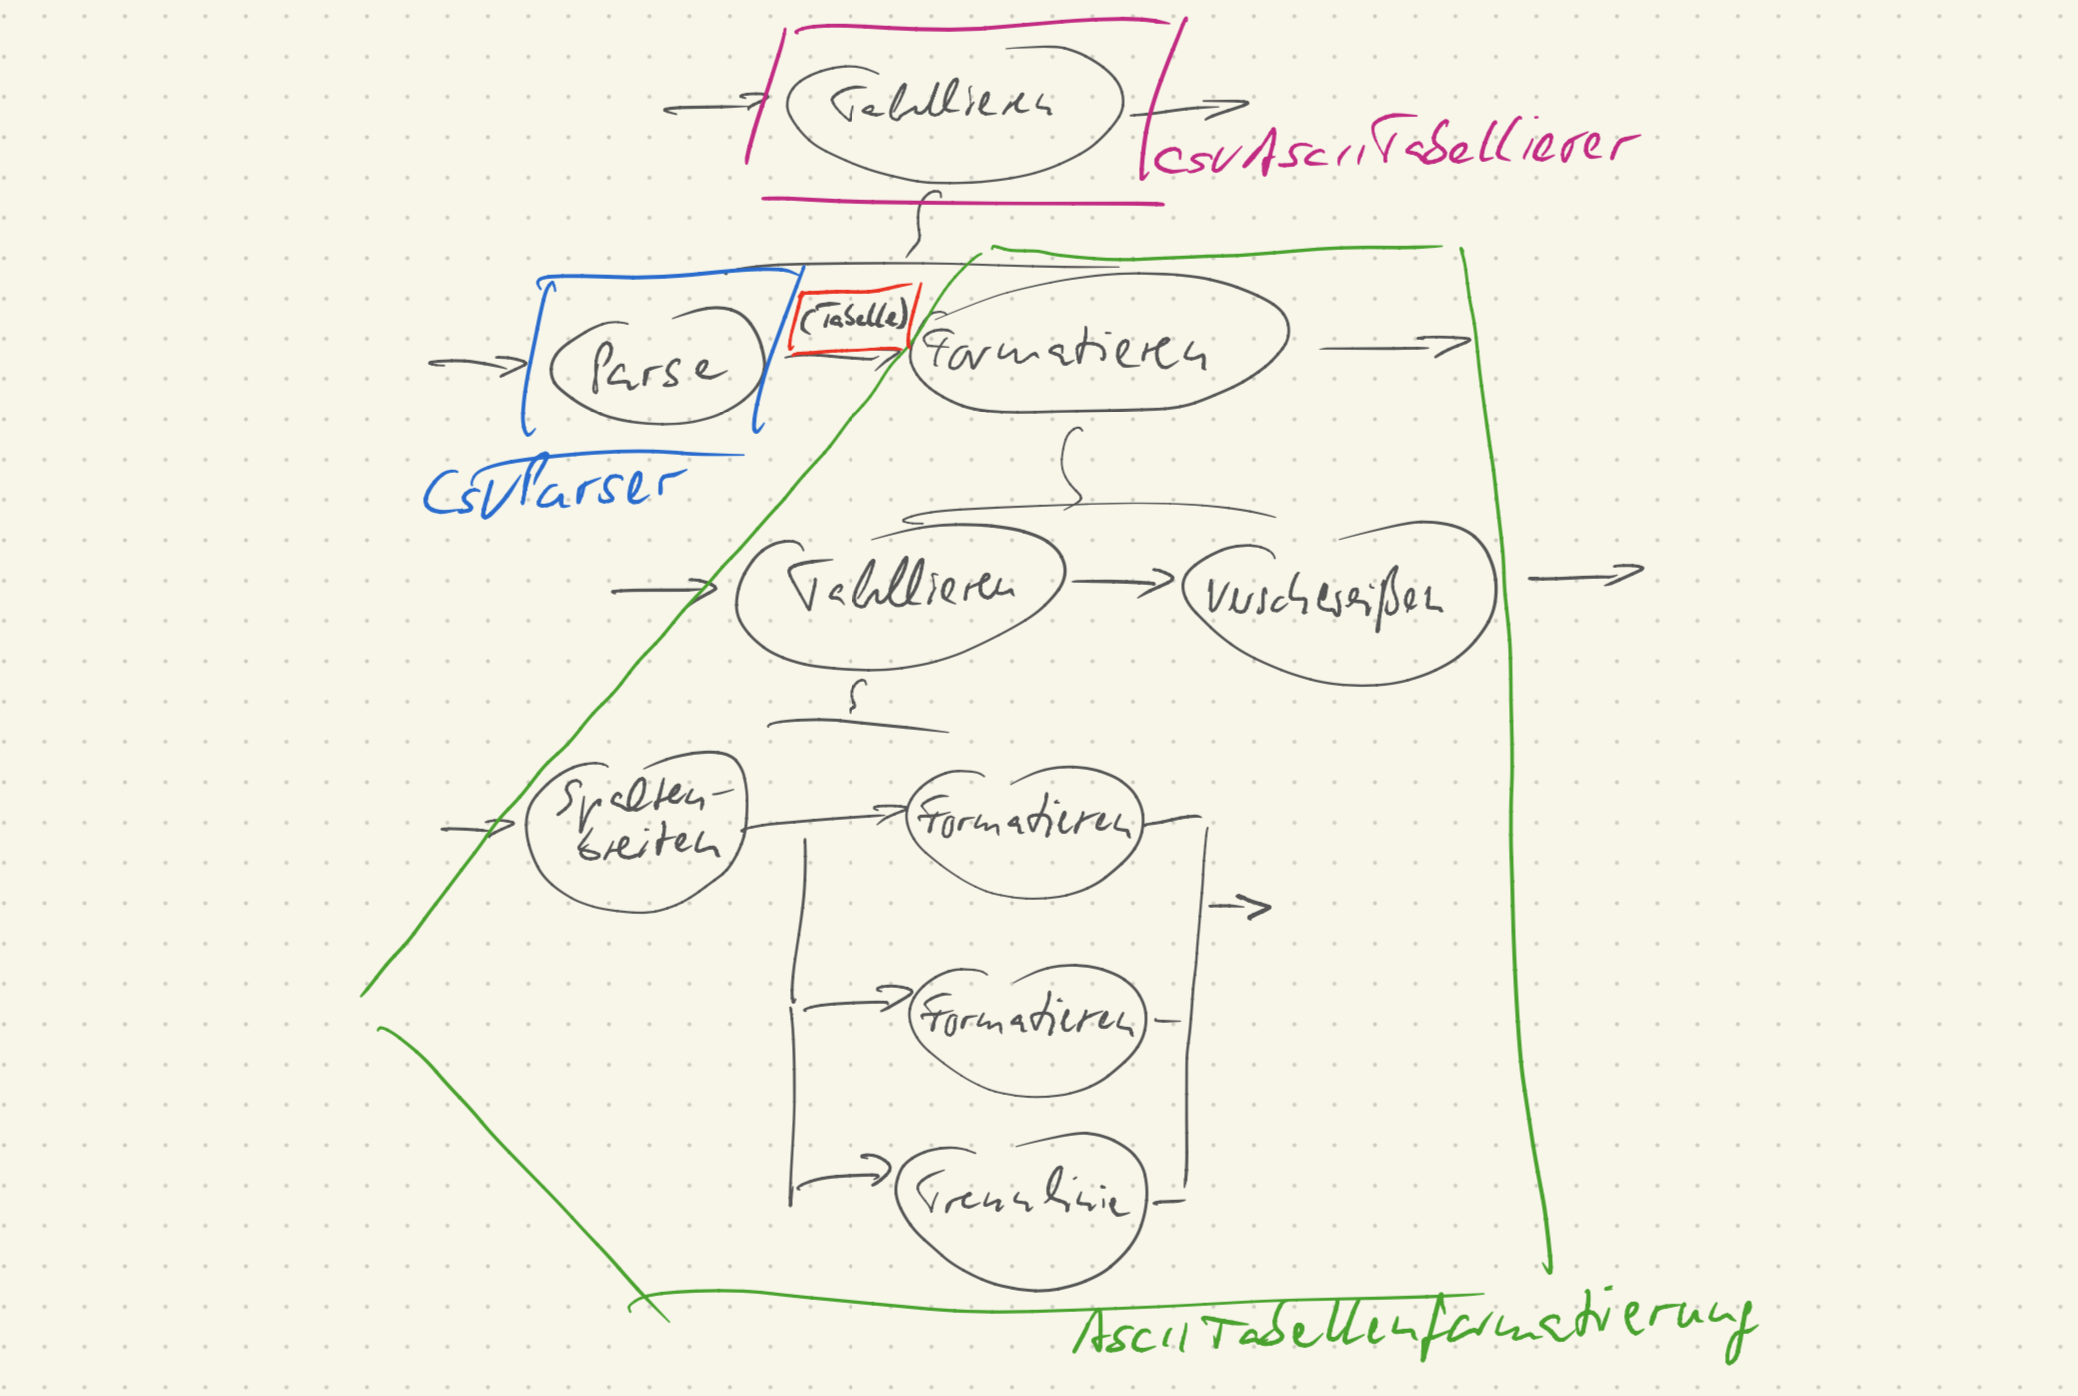 Tabellieren
CsvAsciiTabellierer
Parse
(Tabelle)
Formatieren
CsvParser
Tabellieren
Verschweißen
Spalten-
breiten
Formatieren
Formatieren
Trennlinie
AsciiTabellenformatierung